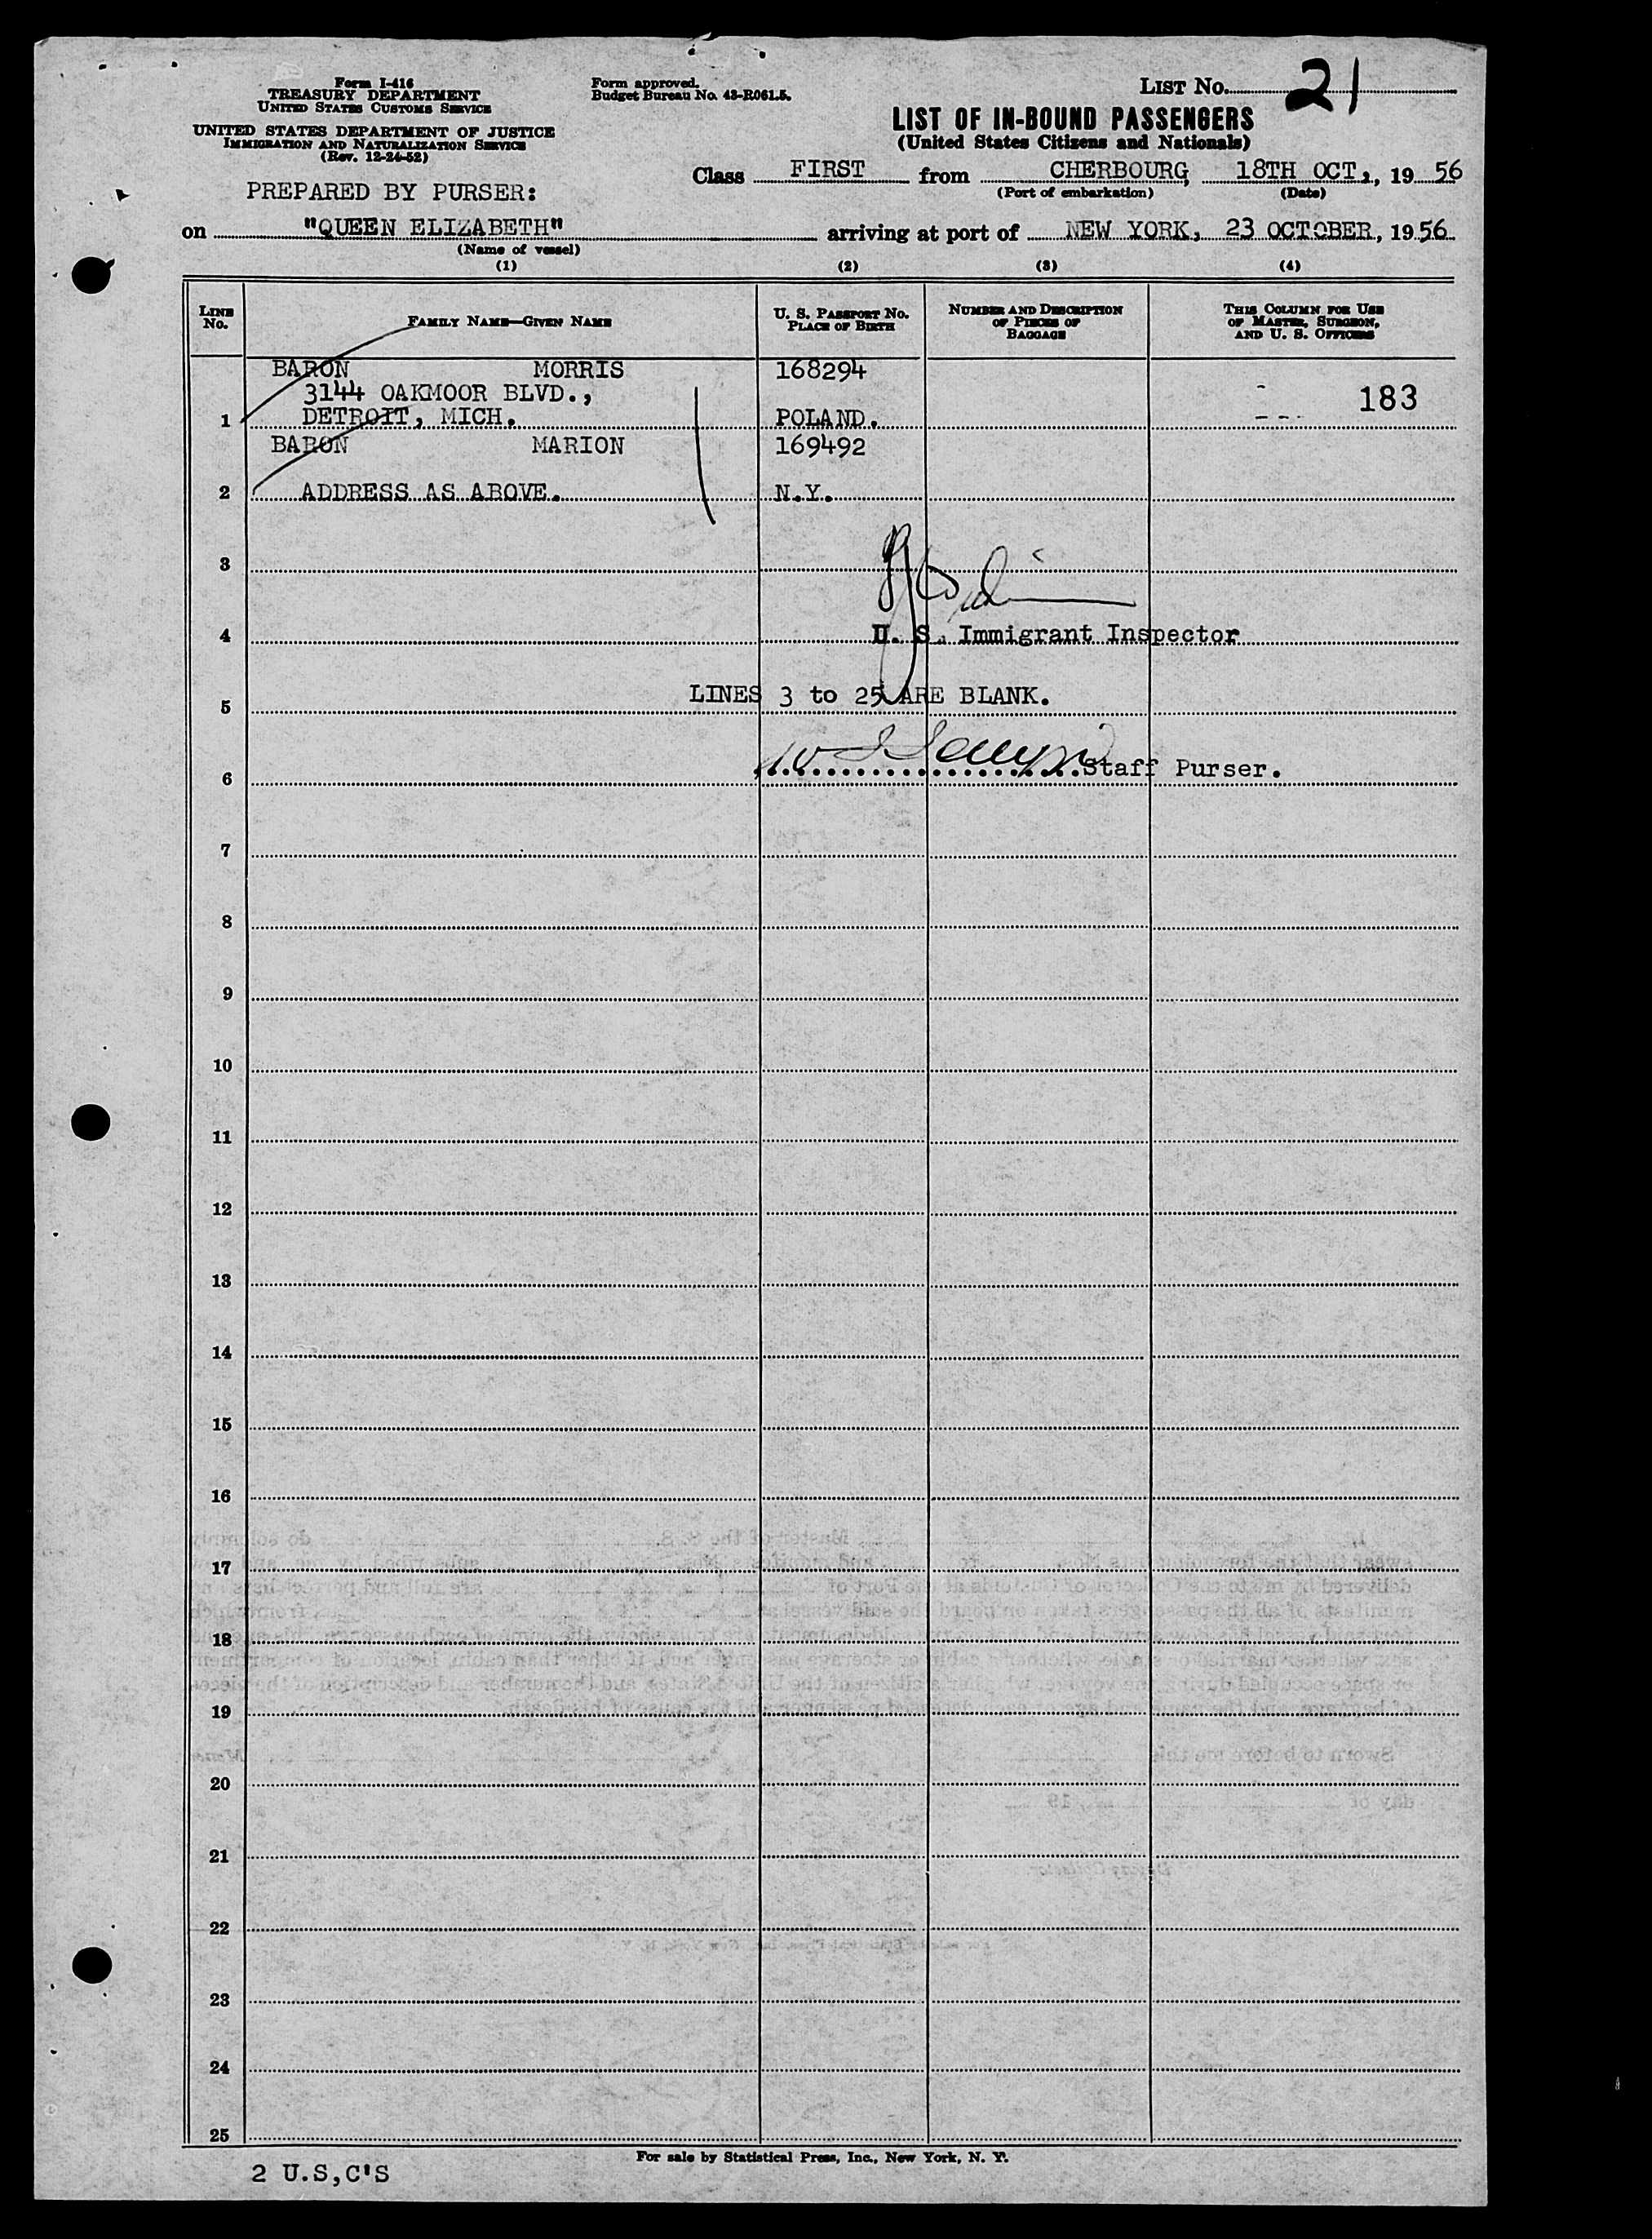 Form I-416
TREASURY DEPARTMENT
UNITED STATES CUSTOMS SERVICE
UNITED STATES DEPARTMENT OF JUSTICE
IMMIGRATION AND NATURALIZATION SERVICE
(Rev. 12-24-52)
Form approved.
Budget Bureau No. 43-R061.5.
LIST No. 21
LIST OF IN-BOUND PASSENGERS
(United States Citizens and Nationals)
Class FIRST from CHERBOURG, 18TH OCT., 19 56
(Port of embarkation) (Date)
PREPARED BY PURSER:
on "QUEEN ELIZABETH" arriving at port of NEW YORK, 23 OCTOBER, 19 56
(Name of vessel)
(1) (2) (3) (4)
LINE No. FAMILY NAME—GIVEN NAME U. S. PASSPORT No. PLACE OF BIRTH NUMBER AND DESCRIPTION OF PIECES OF BAGGAGE THIS COLUMN FOR USE OF MASTER, SURGEON, AND U. S. OFFICERS
BARON MORRIS 168294
3144 OAKMOOR BLVD., 183
1 DETROIT, MICH. POLAND.
BARON MARION 169492
2 ADDRESS AS ABOVE. N.Y.
3
4 U. S. Immigrant Inspector
LINES 3 to 25 ARE BLANK.
5
6 Staff Purser.
7
8
9
10
11
12
13
14
15
16
17
18
19
20
21
22
23
24
25
For sale by Statistical Press, Inc., New York, N. Y.
2 U.S,C'S